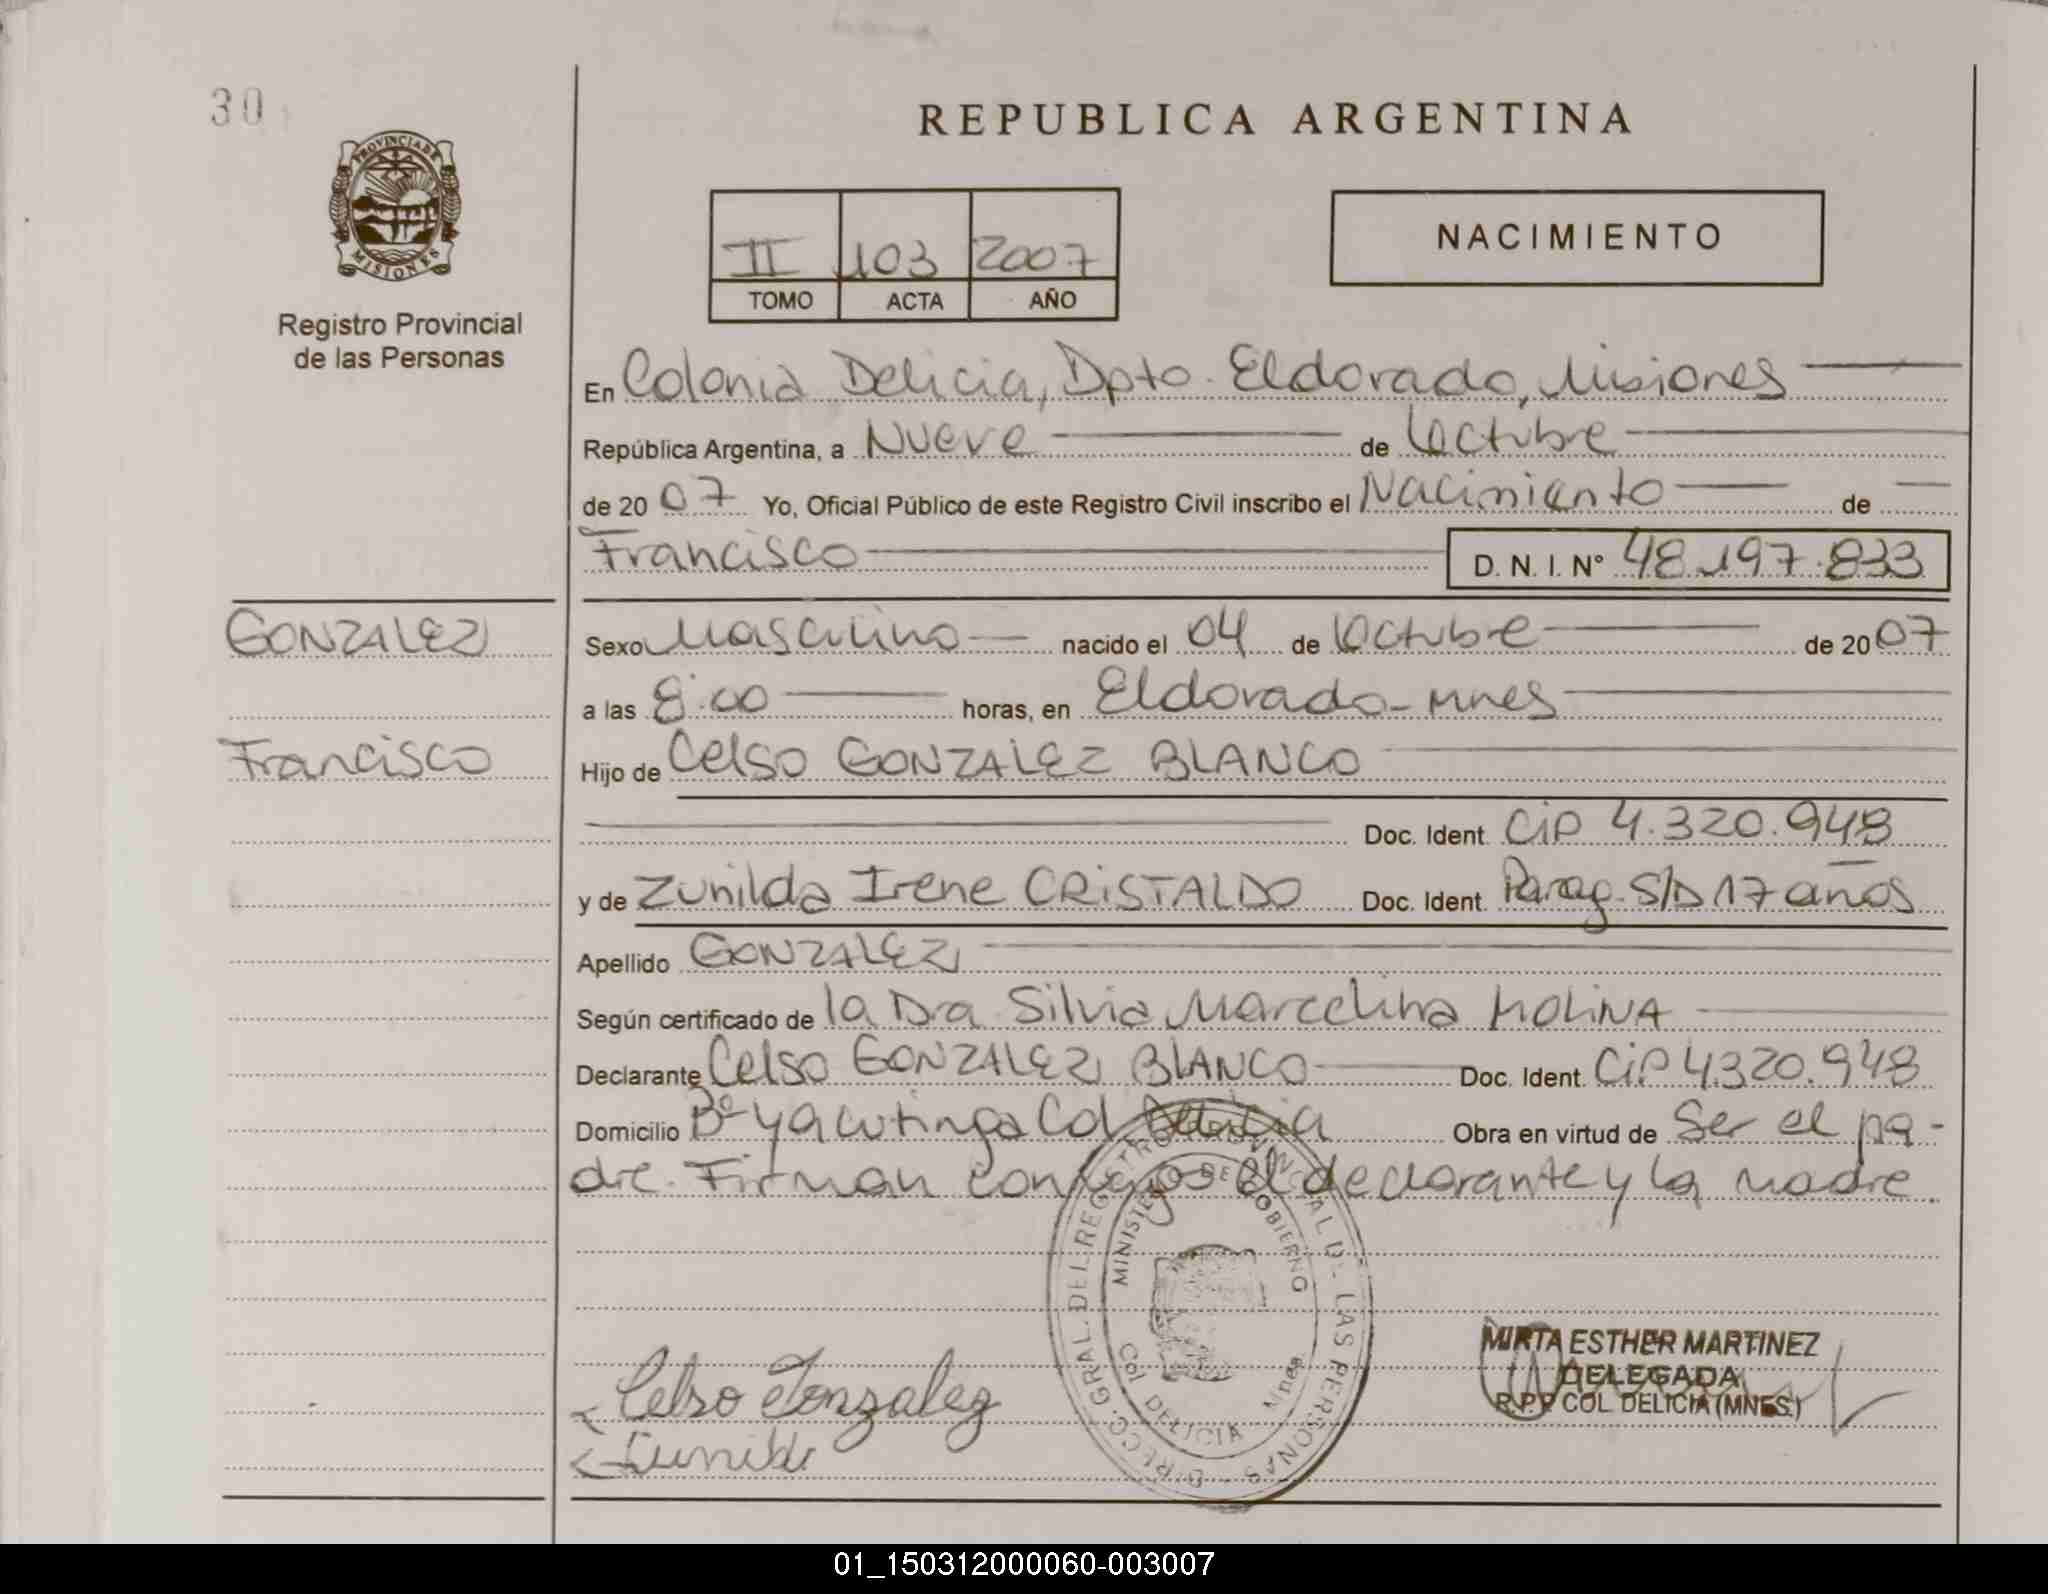 30
REPUBLICA ARGENTINA
PROVINCIA DE
MISIONES
II 103 2007
TOMO ACTA AÑO
NACIMIENTO
Registro Provincial
de las Personas
En Colonia Delicia, Dpto. Eldorado, Misiones
República Argentina, a Nueve de Octubre
de 2007 Yo, Oficial Público de este Registro Civil inscribo el Nacimiento de
Francisco D. N. I. N° 48.197.833
GONZALEZ
Francisco
Sexo Masculino nacido el 04 de Octubre de 2007
a las 8:00 horas, en Eldorado - Mnes
Hijo de Celso GONZALEZ BLANCO
Doc. Ident. CIP 4.320.948
y de Zunilda Irene CRISTALDO Doc. Ident. Parag. S/D 17 años
Apellido GONZALEZ
Según certificado de la Dra Silvia Marcelina MOLINA
Declarante Celso GONZALEZ BLANCO Doc. Ident. CiP 4.320.948
Domicilio B° Yacutinga Col Delicia Obra en virtud de Ser el pa-
dre. Firman conmigo el declarante y la madre.
DIRECC. GRAL. DEL REGISTRO PROVINCIAL DE LAS PERSONAS
MINISTERIO DE GOBIERNO
Col DELICIA Mnes
MIRTA ESTHER MARTINEZ
DELEGADA
R.P.P COL DELICIA (MNES.)
Celso Gonzalez
01_150312000060-003007